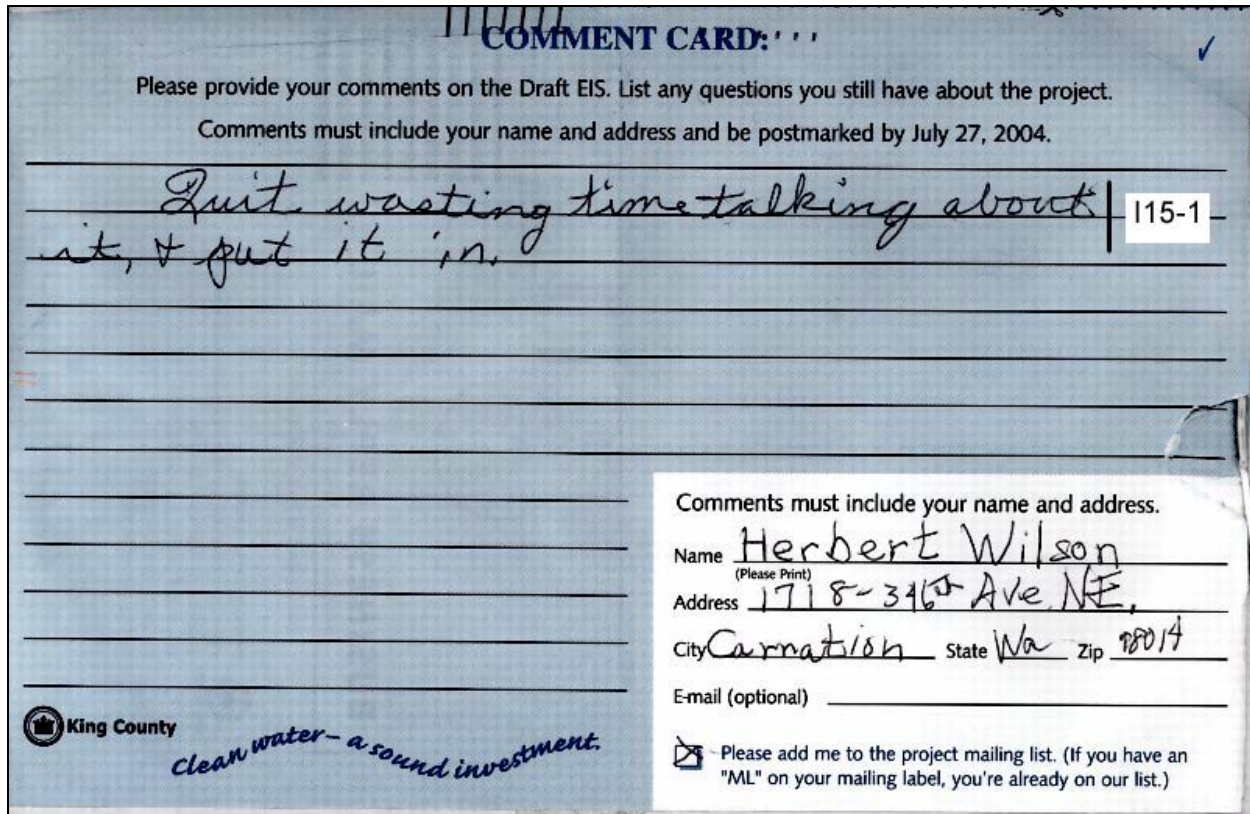 COMMENT CARD:
Please provide your comments on the Draft EIS. List any questions you still have about the project.
Comments must include your name and address and be postmarked by July 27, 2004.
Quit wasting time talking about
it, & put it in.
I15-1
Comments must include your name and address.
Name Herbert Wilson
(Please Print)
Address 1718-346th Ave NE.
City Carnation State Wa Zip 98014
E-mail (optional)
Please add me to the project mailing list. (If you have an
"ML" on your mailing label, you're already on our list.)
King County
Clean water – a sound investment.